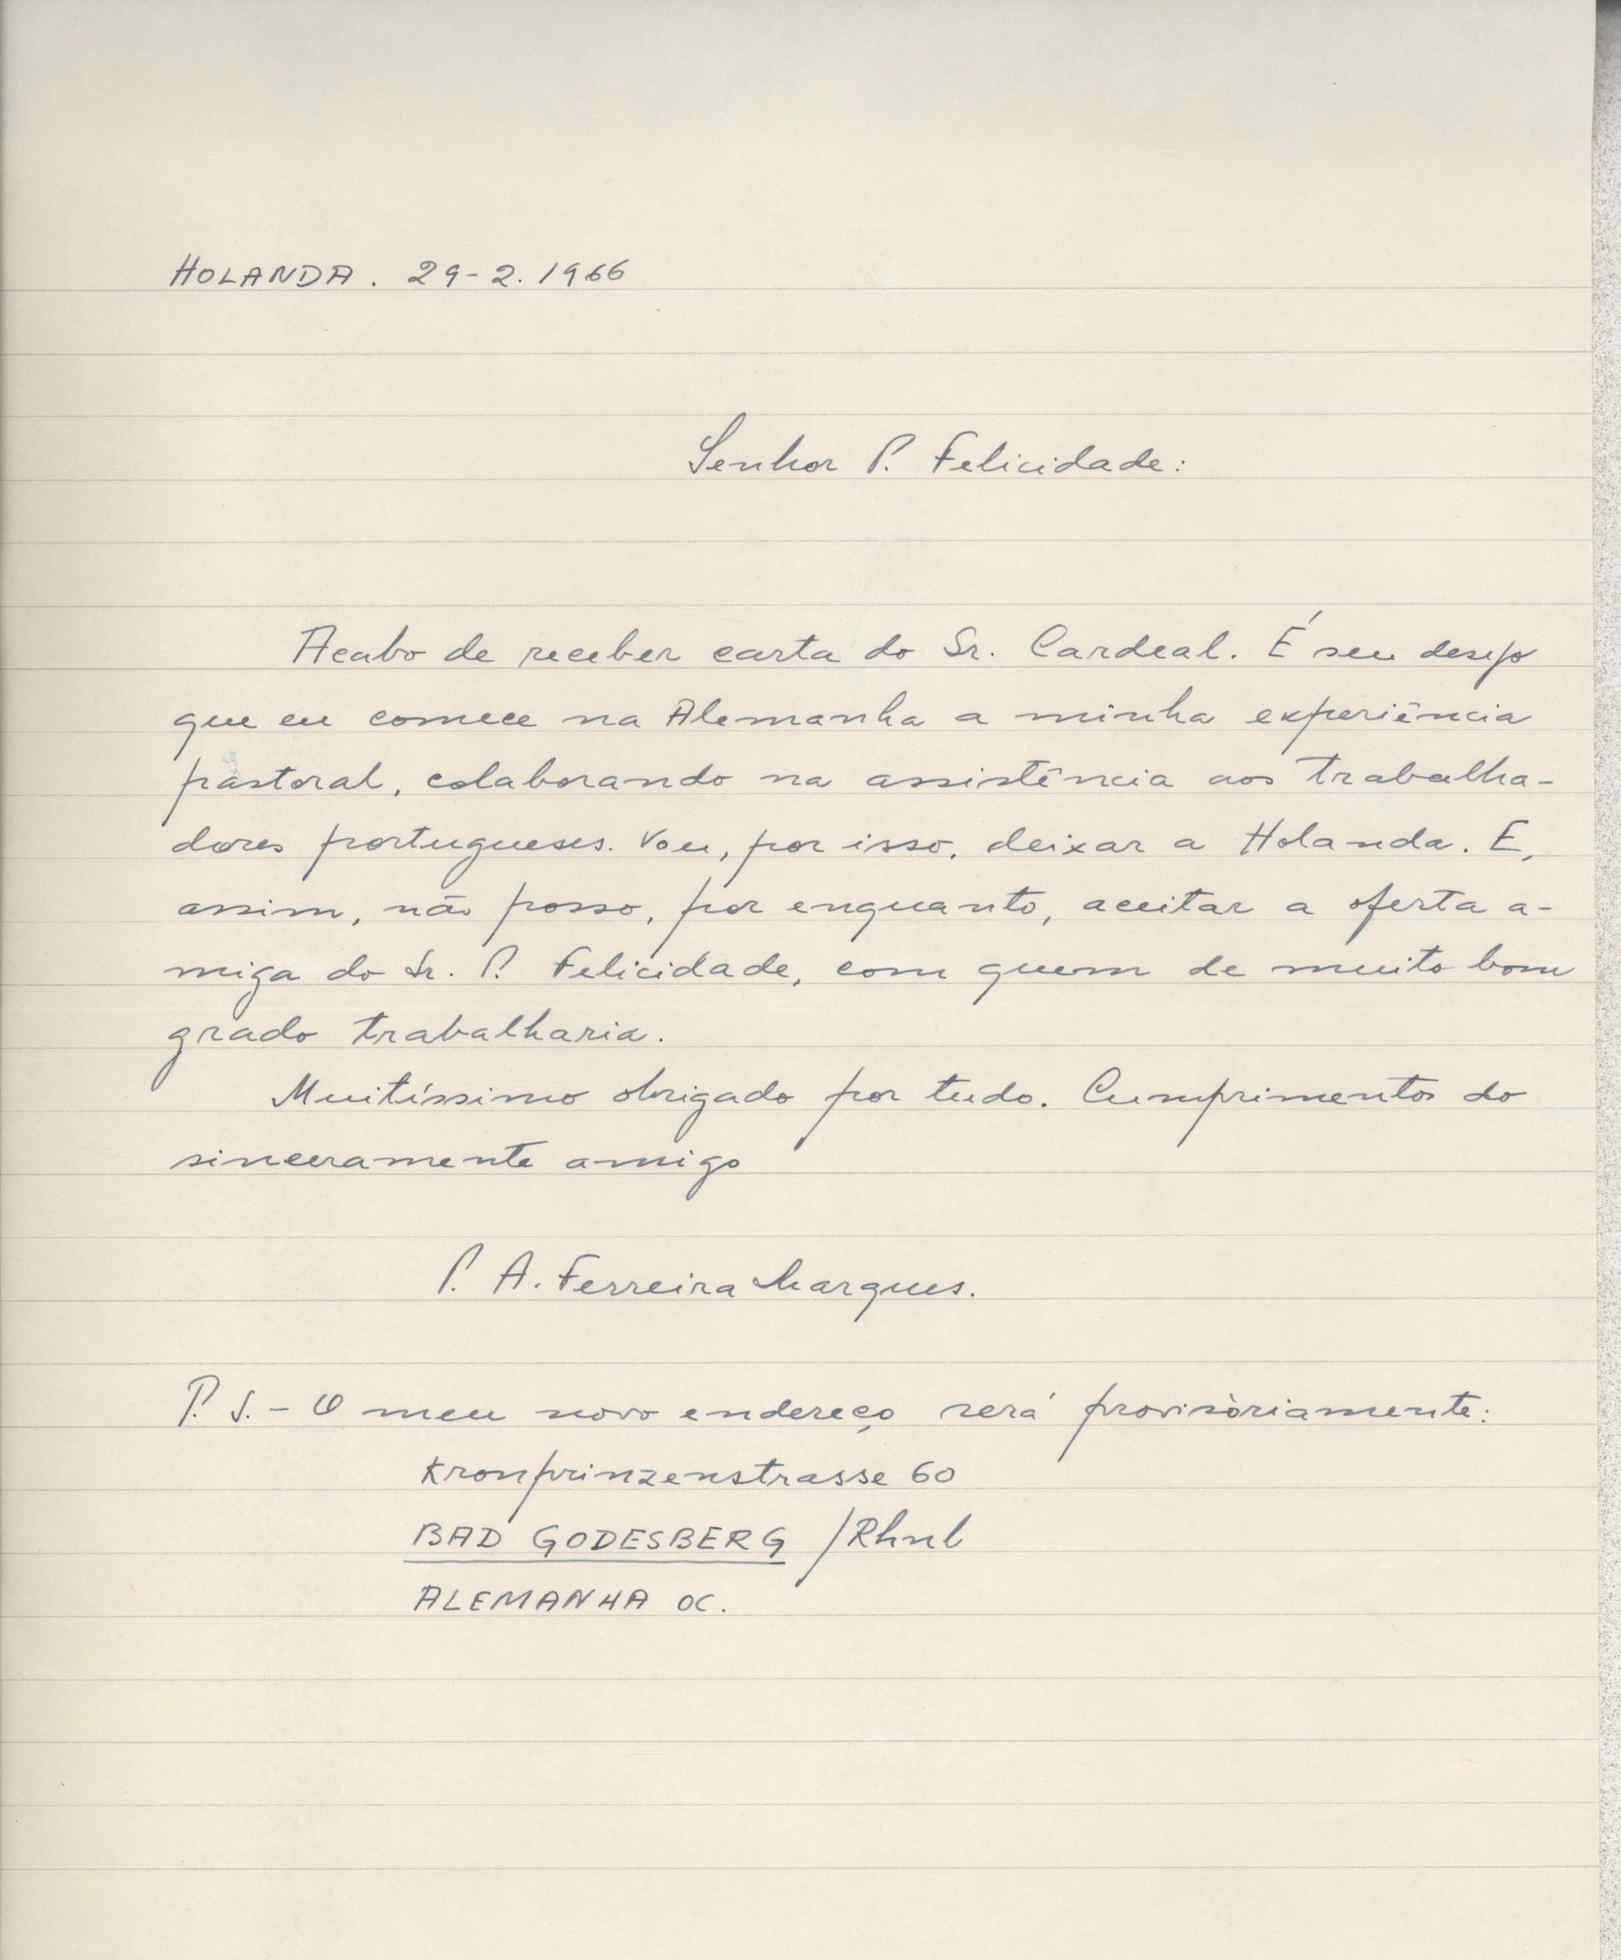 HOLANDA. 29-2.1966
Senhor P. Felicidade:
Acabo de receber carta do Sr. Cardeal. É seu desejo
que eu comece na Alemanha a minha experiência
pastoral, colaborando na assistência aos trabalha-
dores portugueses. Vou, por isso, deixar a Holanda. E,
assim, não posso, por enquanto, aceitar a oferta a-
miga do Sr. P. Felicidade, com quem de muito bom
grado trabalharia.
Muitíssimo obrigado por tudo. Cumprimentos do
sinceramente amigo
P. A. Ferreira Marques.
P.S.- O meu novo endereço será provisòriamente:
Kronprinzenstrasse 60
BAD GODESBERG /Rhnl
ALEMANHA OC.